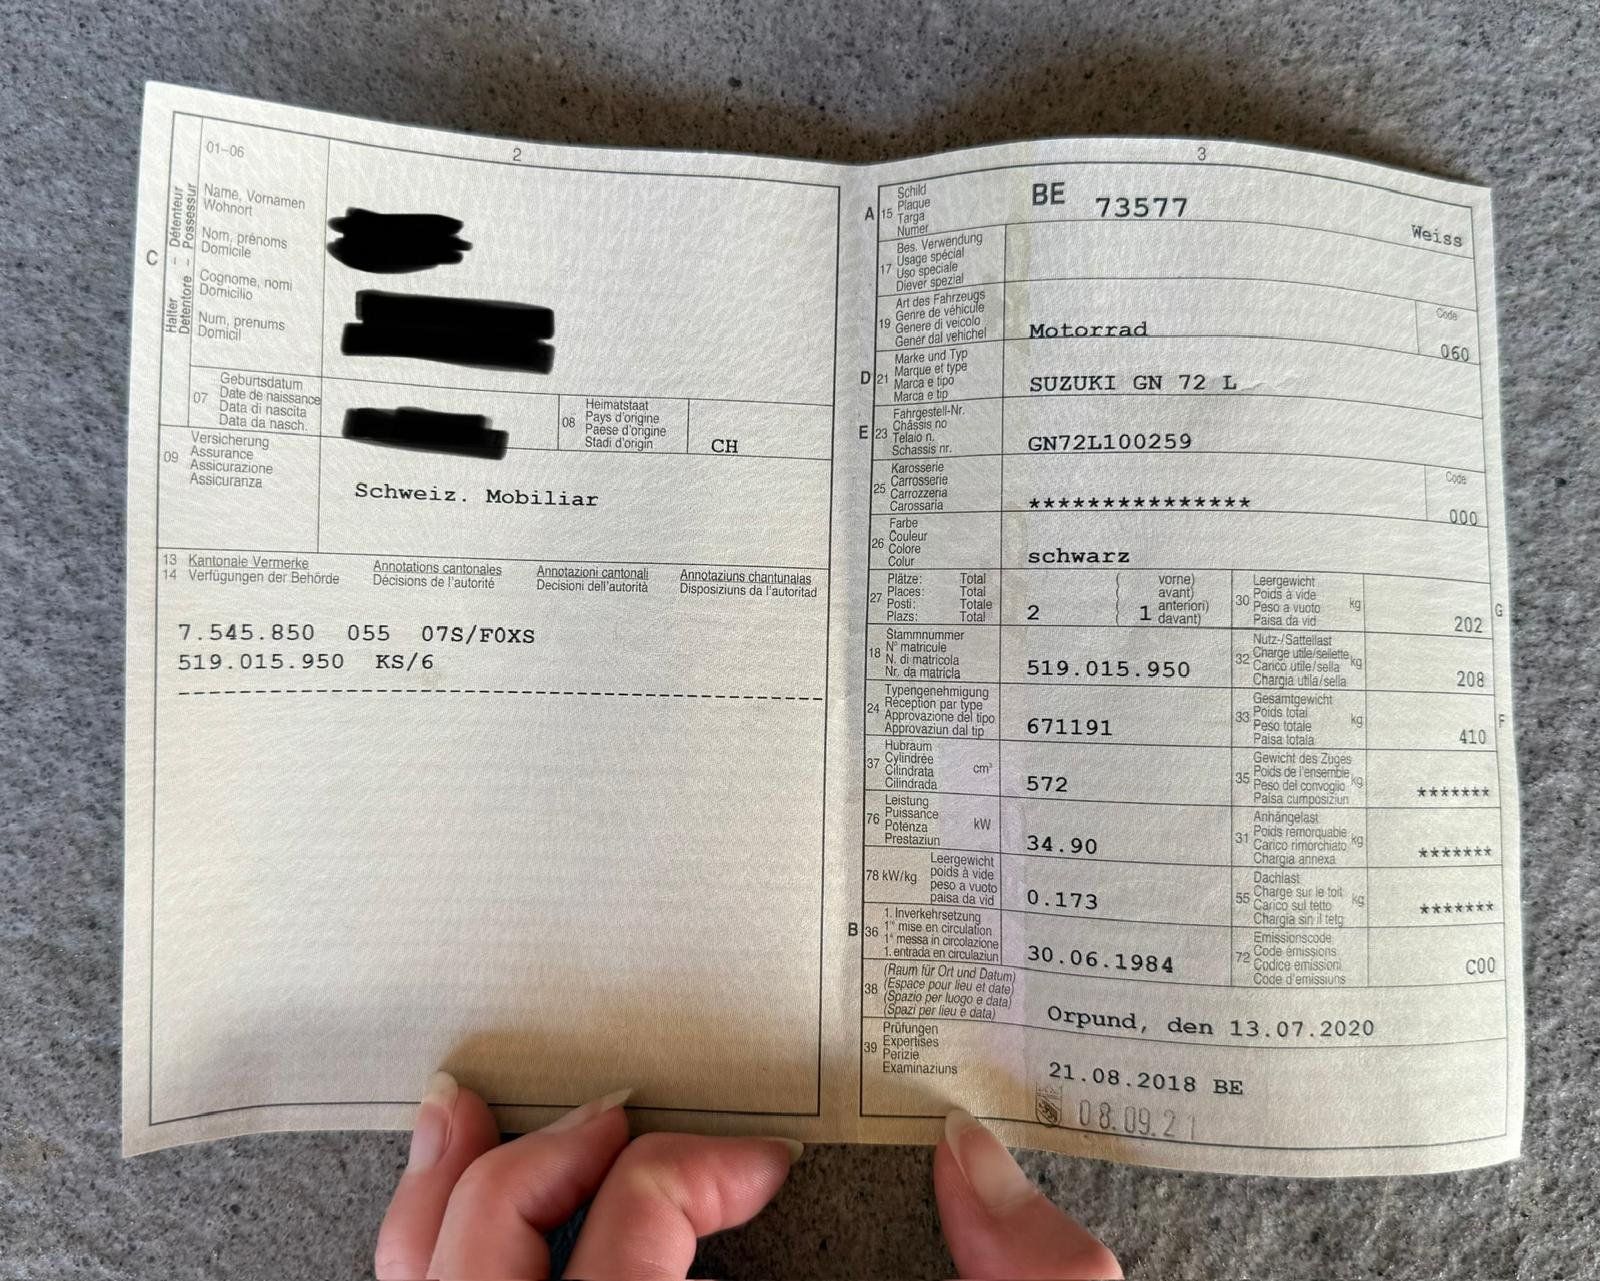 2
01-06
C
Halter – Détenteur
Detentore – Possessur
Name, Vornamen
Wohnort
Nom, prénoms
Domicile
Cognome, nomi
Domicilio
Num, prenums
Domicil
07
Geburtsdatum
Date de naissance
Data di nascita
Data da nasch.
08
Heimatstaat
Pays d'origine
Paese d'origine
Stadi d'origin
CH
09
Versicherung
Assurance
Assicurazione
Assicuranza
Schweiz. Mobiliar
13 Kantonale Vermerke Annotations cantonales Annotazioni cantonali Annotaziuns chantunalas
14 Verfügungen der Behörde Décisions de l'autorité Decisioni dell'autorità Disposiziuns da l'autoritad
7.545.850 055 07S/F0XS
519.015.950 KS/6
3
A 15
Schild
Plaque
Targa
Numer
BE 73577 Weiss
17
Bes. Verwendung
Usage spécial
Uso speciale
Diever spezial
19
Art des Fahrzeugs
Genre de véhicule
Genere di veicolo
Gener dal vehichel
Motorrad
Code
060
D 21
Marke und Typ
Marque et type
Marca e tipo
Marca e tip
SUZUKI GN 72 L
E 23
Fahrgestell-Nr.
Châssis no
Telaio n.
Schassis nr.
GN72L100259
25
Karosserie
Carrosserie
Carrozzeria
Carossaria
***************
Code
000
26
Farbe
Couleur
Colore
Colur
schwarz
27
Plätze: Total
Places: Total
Posti: Totale
Plazs: Total
2
( vorne)
avant)
1 anteriori)
( davant)
30
Leergewicht
Poids à vide
Peso a vuoto
Paisa da vid
kg
202
G
18
Stammnummer
N° matricule
N. di matricola
Nr. da matricla
519.015.950
32
Nutz-/Sattellast
Charge utile/sellette
Carico utile/sella
Chargia utila/sella
kg
208
24
Typengenehmigung
Réception par type
Approvazione del tipo
Approvaziun dal tip
671191
33
Gesamtgewicht
Poids total
Peso totale
Paisa totala
kg
410
F
37
Hubraum
Cylindrée
Cilindrata
Cilindrada
cm³
572
35
Gewicht des Zuges
Poids de l'ensemble
Peso del convoglio
Paisa cumposiziun
kg
*******
76
Leistung
Puissance
Potenza
Prestaziun
kW
34.90
31
Anhängelast
Poids remorquable
Carico rimorchiato
Chargia annexa
kg
*******
78 kW/kg
Leergewicht
poids à vide
peso a vuoto
paisa da vid
0.173
55
Dachlast
Charge sur le toit
Carico sul tetto
Chargia sin il tetg
kg
*******
B 36
1. Inverkehrsetzung
1re mise en circulation
1a messa in circolazione
1. entrada en circulaziun
30.06.1984
72
Emissionscode
Code émissions
Codice emissioni
Code d'emissiuns
C00
38
(Raum für Ort und Datum)
(Espace pour lieu et date)
(Spazio per luogo e data)
(Spazi per lieu e data)
Orpund, den 13.07.2020
39
Prüfungen
Expertises
Perizie
Examinaziuns
21.08.2018 BE
08.09.21